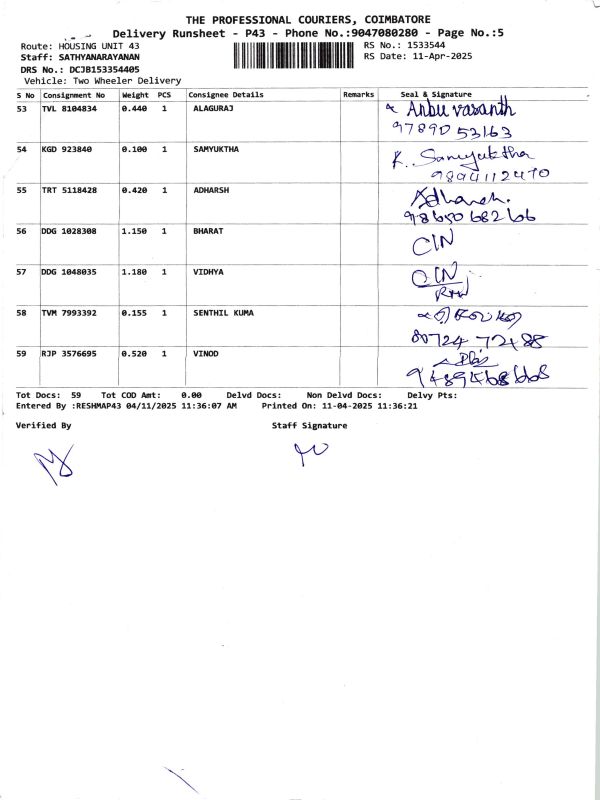 THE PROFESSIONAL COURIERS, COIMBATORE
Delivery Runsheet - P43 - Phone No.:9047080280 - Page No.:5
Route: HOUSING UNIT 43 RS No.: 1533544
Staff: SATHYANARAYANAN RS Date: 11-Apr-2025
DRS No.: DCJB153354405
Vehicle: Two Wheeler Delivery
S No Consignment No Weight PCS Consignee Details Remarks Seal & Signature
53 TVL 8104834 0.440 1 ALAGURAJ Anbu vasanth
97890 53163
54 KGD 923840 0.100 1 SAMYUKTHA K. Samyuktha
9894112470
55 TRT 5118428 0.420 1 ADHARSH Adharsh.
56 DDG 1028308 1.150 1 BHARAT CIN
57 DDG 1048035 1.180 1 VIDHYA CIN
58 TVM 7993392 0.155 1 SENTHIL KUMA
80724 72488
59 RJP 3576695 0.520 1 VINOD
Tot Docs: 59 Tot COD Amt: 0.00 Delvd Docs: Non Delvd Docs: Delvy Pts:
Entered By :RESHMAP43 04/11/2025 11:36:07 AM Printed On: 11-04-2025 11:36:21
Verified By Staff Signature